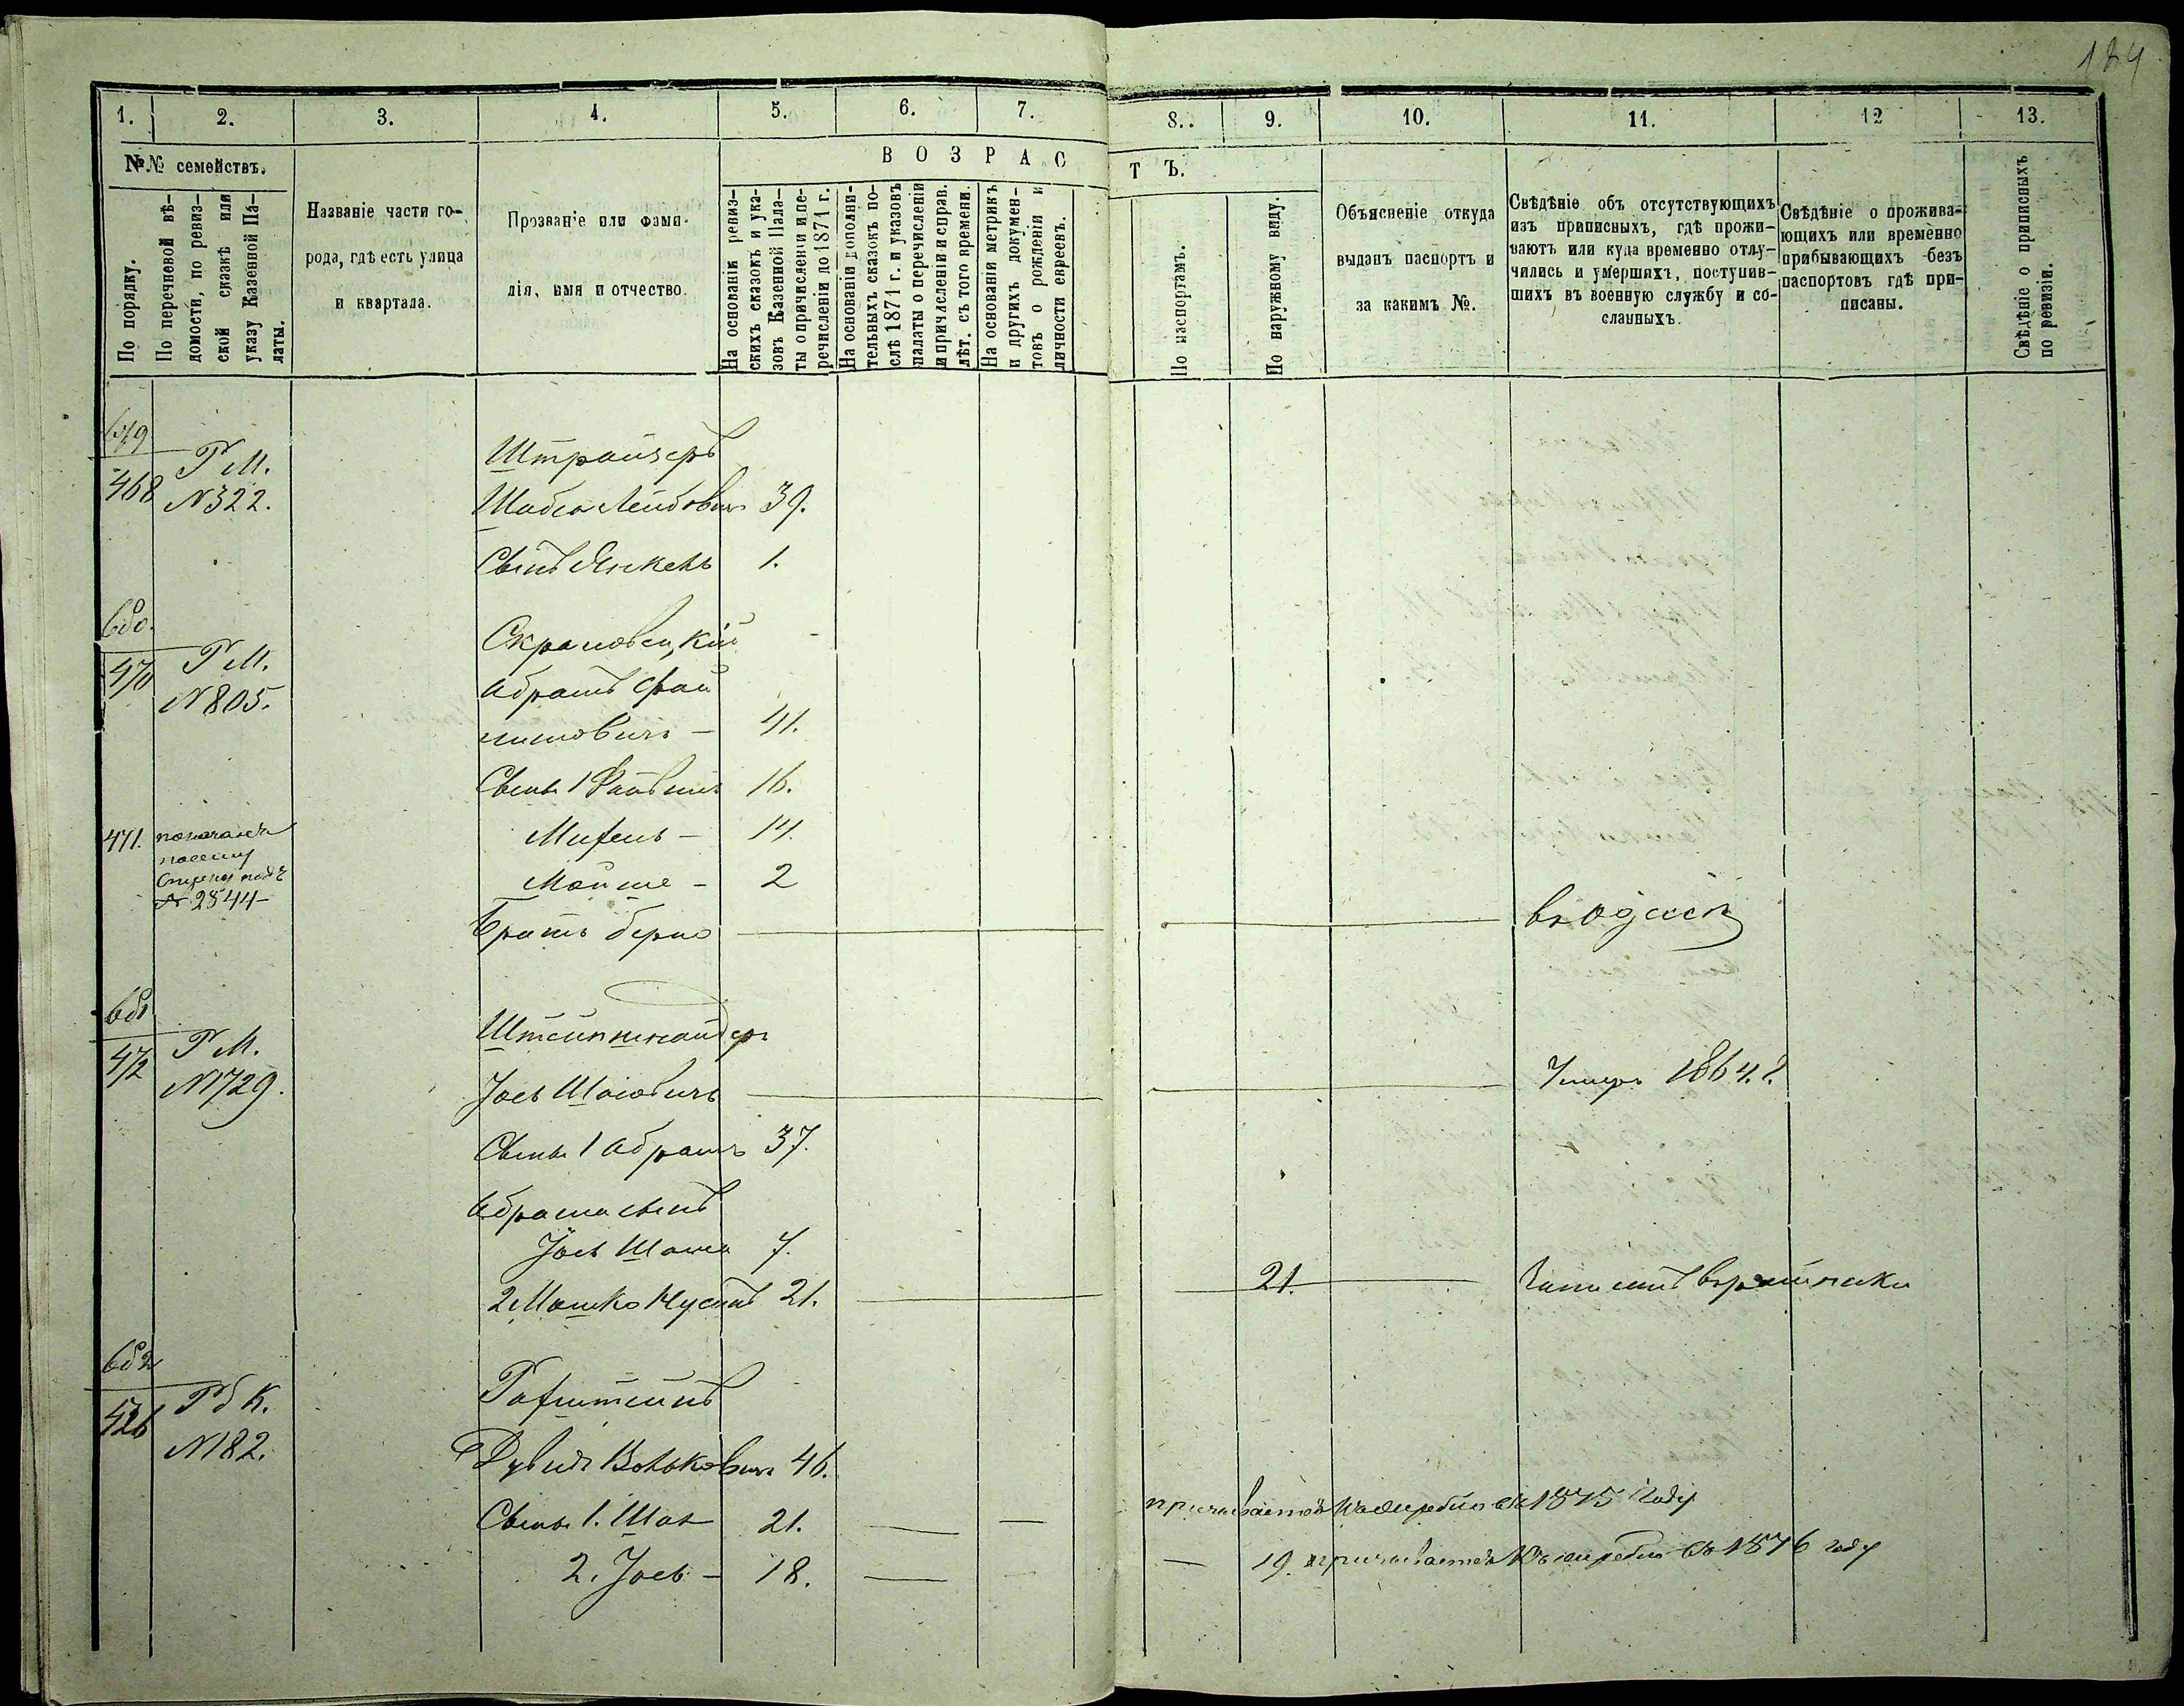 184
1. 2. 3. 4. 5. 6. 7. 8. 9. 10. 11. 12 13.
№№ семействъ.
По порядку.
По перечневой вѣ-
домости, по ревиз-
ской сказкѣ или
указу Казенной Па-
латы.
Названіе части го-
рода, гдѣ есть улица
и квартала.
Прозваніе или фами-
лія, имя и отчество.
ВОЗРАСТЪ.
На основаніи ревиз-
скихъ сказокъ и ука-
зовъ Казенной Пала-
ты о причисленіи и пе-
речисленіи до 1871 г.
На основаніи дополни-
тельныхъ сказокъ по-
слѣ 1871 г. и указовъ
палаты о перечисленіи
и причисленіи и справ.
лѣт. съ того времени.
На основаніи метрикъ
и другихъ докумен-
товъ о рожденіи и
личности евреевъ.
По паспортамъ.
По наружному виду.
Объясненіе откуда
выданъ паспортъ и
за какимъ №.
Свѣдѣніе объ отсутствующихъ
изъ приписныхъ, гдѣ прожи-
ваютъ или куда временно отлу-
чились и умершихъ, поступив-
шихъ въ военную службу и со-
сланныхъ.
Свѣдѣніе о прожива-
ющихъ или временно
прибывающихъ безъ
паспортовъ гдѣ при-
писаны.
Свѣдѣніе о приписныхъ
по ревизіи.
679
468 Р М.
N 322.
Штрайхеръ
Шабса Лейбовичъ 39.
Сынъ Янкель 1.
680.
470 Р М.
N 805.
Абрамъ Фай
вишовичъ – 41.
Сыны 1 Файвишъ 16.
Михель – 14.
Мойше – 2
471. N 2544
Братъ Берко въ Одессѣ
681
472 Р М.
N 1729.
Штейншнайдеръ
Іось Шаювичъ Умеръ 1864 г.
Сыны 1 Абрамъ 37.
Абрама сынъ
Іось Шаша 7.
2 Мошко Нусинъ 21. 21.
682
426 Р д К.
N 182.
Рахштейнъ
Дувидъ Вольковичъ 46.
Сыны 1. Шая 21. къ жеребью въ 1875 году
2. Іось – 18. 19. къ жеребью въ 1876 году